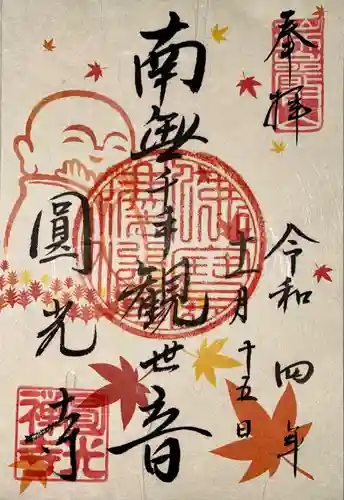 奉拝
令和四年
十一月十五日
南無千手観世音
圓光寺